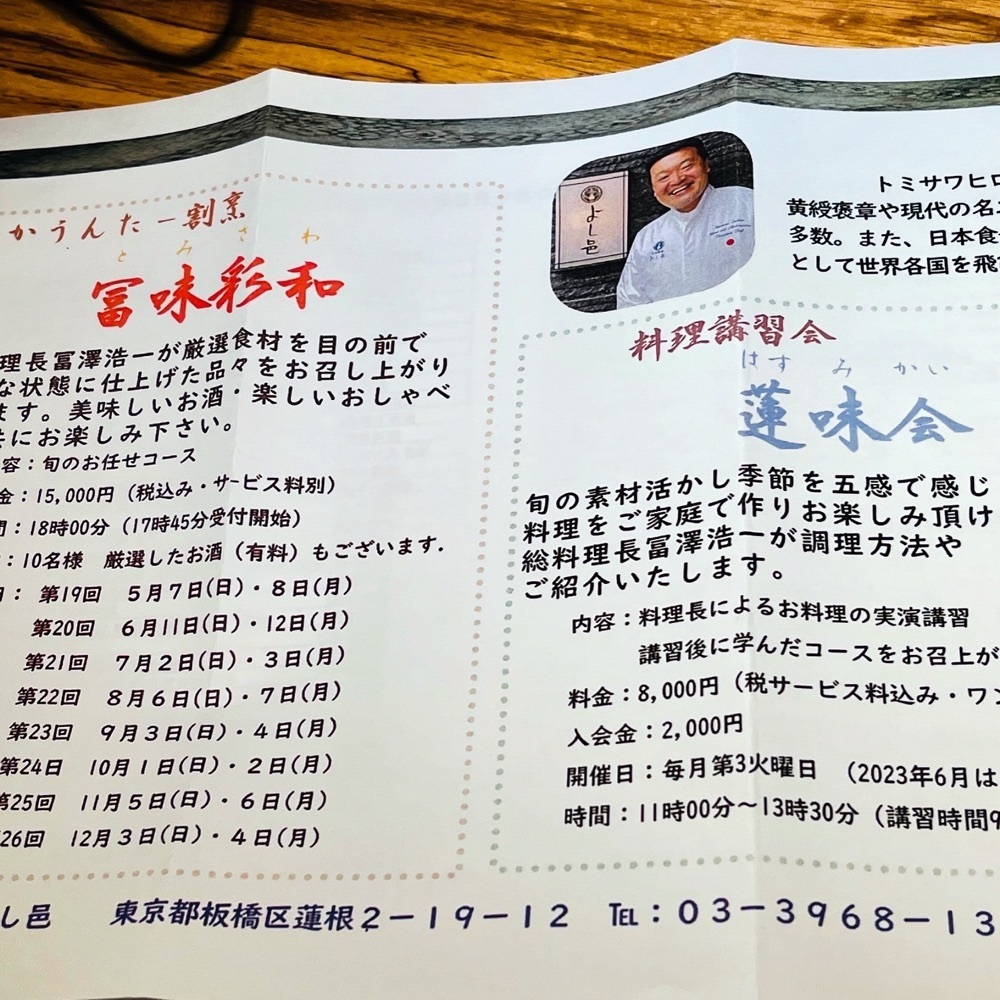 かうんたー割烹
とみさわ
冨味彩和
理長冨澤浩一が厳選食材を目の前で
な状態に仕上げた品々をお召し上がり
ます。美味しいお酒・楽しいおしゃべ
共にお楽しみ下さい。
容：旬のお任せコース
金：15,000円（税込み・サービス料別）
間：18時00分（17時45分受付開始）
：10名様　厳選したお酒（有料）もございます.
日：第19回　5月7日(日)・8日(月)
第20回　6月11日(日)・12日(月)
第21回　7月2日(日)・3日(月)
第22回　8月6日(日)・7日(月)
第23回　9月3日(日)・4日(月)
第24日　10月1日(日)・2日(月)
第25回　11月5日(日)・6日(月)
26回　12月3日(日)・4日(月)
よし邑
トミサワヒロ
黄綬褒章や現代の名工
多数。また、日本食
として世界各国を飛
料理講習会
はすみかい
蓮味会
旬の素材活かし季節を五感で感じ
料理をご家庭で作りお楽しみ頂け
総料理長冨澤浩一が調理方法や
ご紹介いたします。
内容：料理長によるお料理の実演講習
講習後に学んだコースをお召上が
料金：8,000円（税サービス料込み・ワン
入会金：2,000円
開催日：毎月第3火曜日　（2023年6月は
時間：11時00分～13時30分（講習時間9
し邑　東京都板橋区蓮根２－１９－１２　℡：０３－３９６８－１３